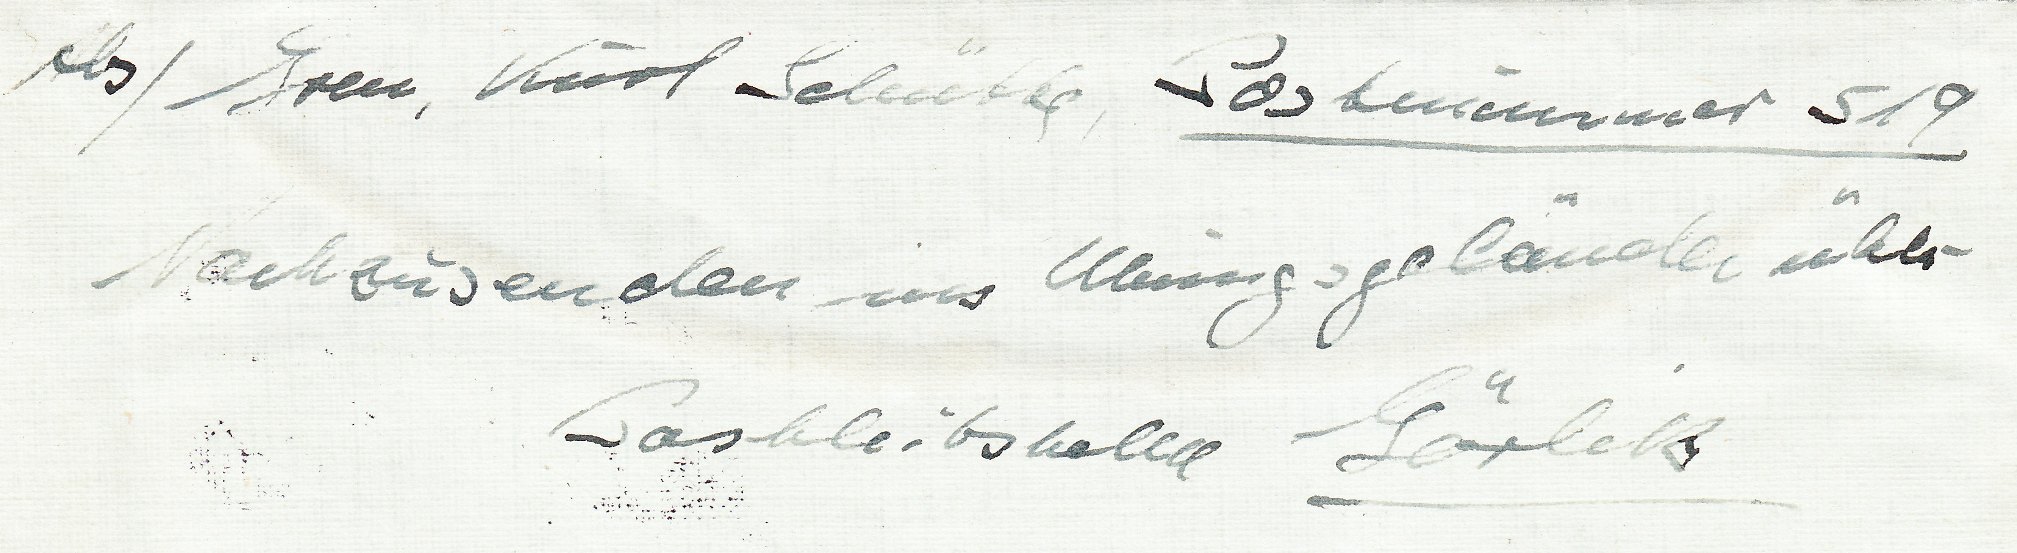 Abs/ Gren. Kurt Schütte, Postnummer 519
Nachzusenden ins Übungsgelände über
Postleitstelle Görlitz